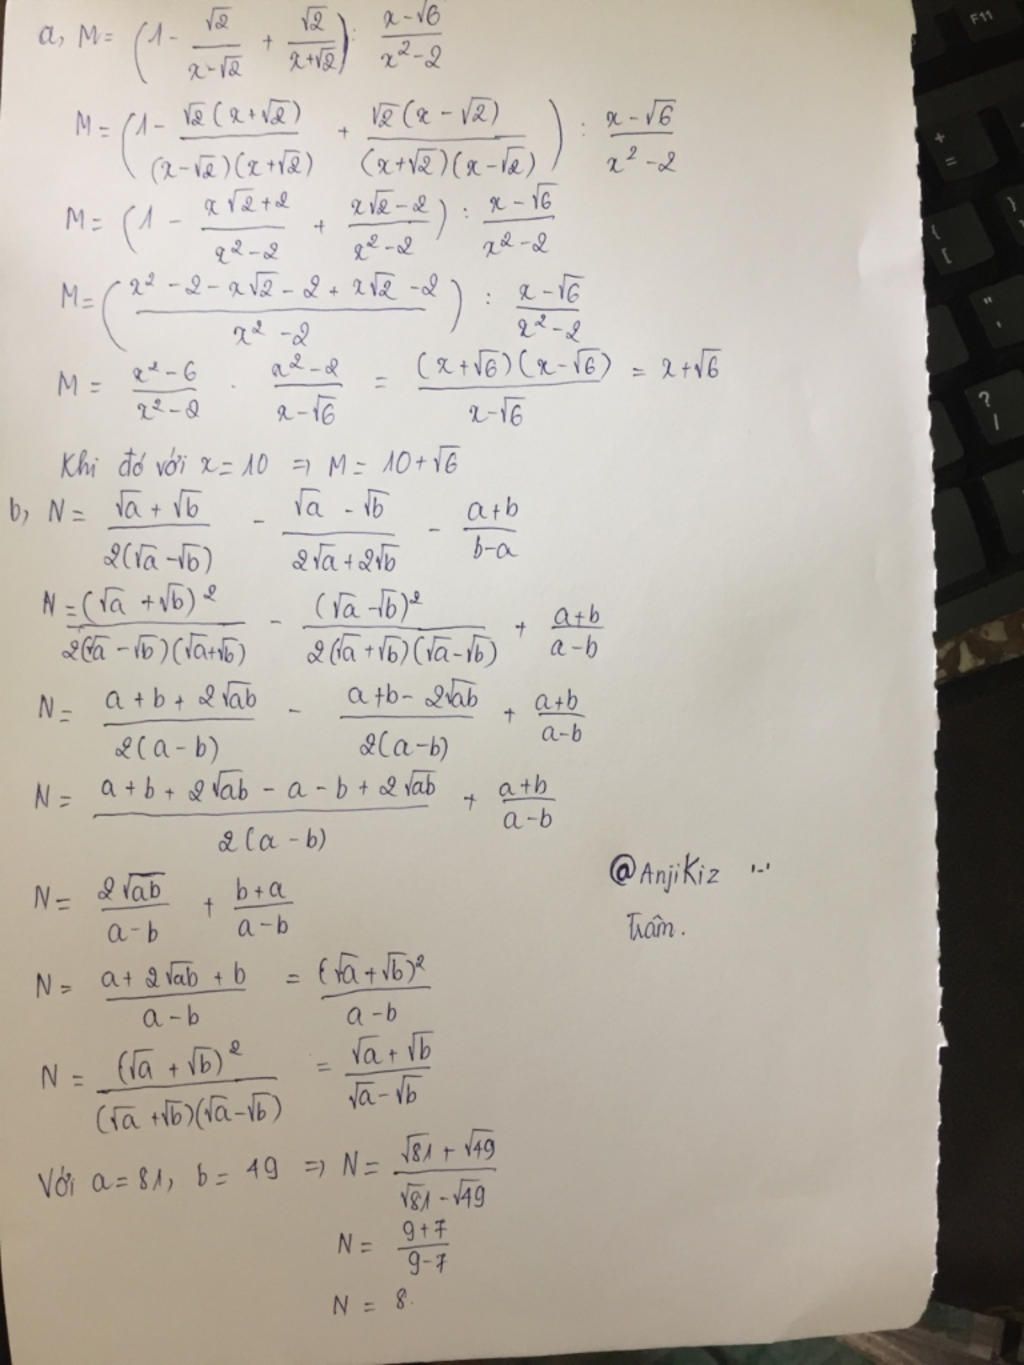 a, M = (1 - √2/(x-√2) + √2/(x+√2)) : (x-√6)/(x²-2)
M = (1 - √2(x+√2)/((x-√2)(x+√2)) + √2(x-√2)/((x+√2)(x-√2))) : (x-√6)/(x²-2)
M = (1 - (x√2+2)/(x²-2) + (x√2-2)/(x²-2)) : (x-√6)/(x²-2)
M = ((x²-2-x√2-2+x√2-2)/(x²-2)) : (x-√6)/(x²-2)
M = (x²-6)/(x²-2) . (x²-2)/(x-√6) = ((x+√6)(x-√6))/(x-√6) = x+√6
Khi đó với x = 10 => M = 10+√6
b, N = (√a+√b)/(2(√a-√b)) - (√a-√b)/(2√a+2√b) - (a+b)/(b-a)
N = (√a+√b)²/(2(√a-√b)(√a+√b)) - (√a-√b)²/(2(√a+√b)(√a-√b)) + (a+b)/(a-b)
N = (a+b+2√ab)/(2(a-b)) - (a+b-2√ab)/(2(a-b)) + (a+b)/(a-b)
N = (a+b+2√ab-a-b+2√ab)/(2(a-b)) + (a+b)/(a-b)
N = 2√ab/(a-b) + (b+a)/(a-b)
@AnjiKiz
Trâm.
N = (a+2√ab+b)/(a-b) = (√a+√b)²/(a-b)
N = (√a+√b)²/((√a+√b)(√a-√b)) = (√a+√b)/(√a-√b)
Với a = 81, b = 49 => N = (√81+√49)/(√81-√49)
N = (9+7)/(9-7)
N = 8.
F11
+
=
{
[
}
"
'
?
/